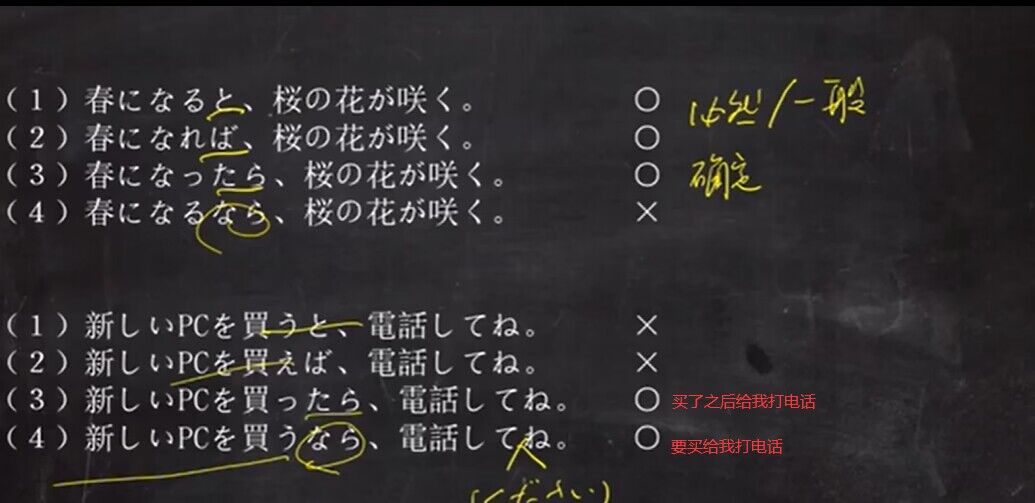 (1)春になると、桜の花が咲く。 ○ 必然/一般
(2)春になれば、桜の花が咲く。 ○
(3)春になったら、桜の花が咲く。 ○ 确定
(4)春になるなら、桜の花が咲く。 ×
(1)新しいPCを買うと、電話してね。 ×
(2)新しいPCを買えば、電話してね。 ×
(3)新しいPCを買ったら、電話してね。 ○ 买了之后给我打电话
(4)新しいPCを買うなら、電話してね。 ○ 要买给我打电话
(ください)